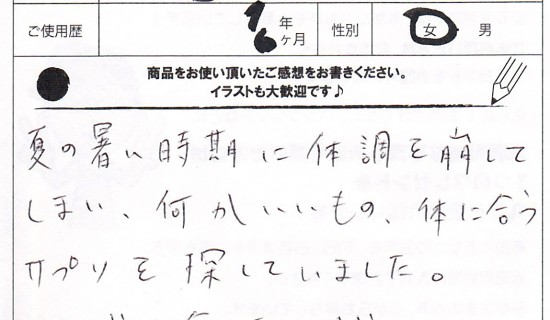 ご使用歴 年 ヶ月 性別 女 ・ 男
商品をお使い頂いたご感想をお書きください。
イラストも大歓迎です♪
夏の暑い時期に体調を崩して
しまい、何かいいもの、体に合う
サプリを探していました。